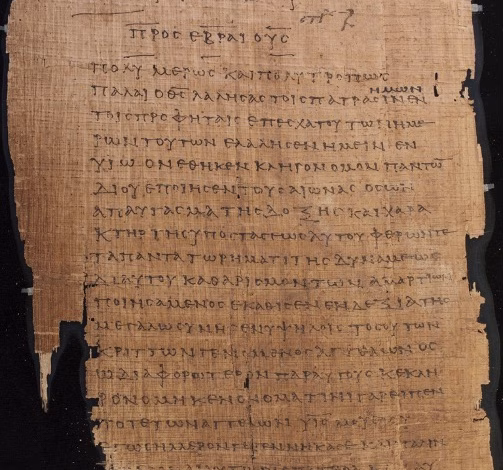 ΠΡΟC ΕΒΡΑΙΟΥC
ΠΟΛΥΜΕΡΩC ΚΑΙ ΠΟΛΥΤΡΟΠΩC
ΗΜΩΝ
ΠΑΛΑΙ Ο ΘC ΛΑΛΗCΑC ΤΟΙC ΠΑΤΡΑCΙΝ ΕΝ
ΤΟΙC ΠΡΟΦΗΤΑΙC ΕΠ ΕCΧΑΤΟΥ ΤΩΝ ΗΜΕ
ΡΩΝ ΤΟΥΤΩΝ ΕΛΑΛΗCΕΝ ΗΜΕΙΝ ΕΝ
ΥΙΩ ΟΝ ΕΘΗΚΕΝ ΚΛΗΡΟΝΟΜΟΝ ΠΑΝΤΩ̅
ΔΙ ΟΥ ΕΠΟΙΗCΕΝ ΤΟΥC ΑΙΩΝΑC ΟC ΩΝ
ΑΠΑΥΓΑCΜΑ ΤΗC ΔΟΞΗC ΚΑΙ ΧΑΡΑ
ΚΤΗΡ ΤΗC ΥΠΟCΤΑCΕΩC ΑΥΤΟΥ ΦΕΡΩΝ ΤΕ
ΤΑ ΠΑΝΤΑ ΤΩ ΡΗΜΑΤΙ ΤΗC ΔΥΝΑΜΕΩC
ΔΙ ΑΥΤΟΥ ΚΑΘΑΡΙCΜΟΝ ΤΩΝ ΑΜΑΡΤΙΩΝ
ΠΟΙΗCΑΜΕΝΟC ΕΚΑΘΙCΕΝ ΕΝ ΔΕΞΙΑ ΤΗC
ΜΕΓΑΛΩCΥΝΗC ΕΝ ΥΨΗΛΟΙC ΤΟCΟΥΤΩΝ
ΚΡΙΤΤΩΝ ΓΕΝΟΜΕΝΟC ΑΓΓΕΛΩΝ ΟC
Ω ΔΙΑΦΟΡΩΤΕΡΟΝ ΠΑΡ ΑΥΤΟΥC ΚΕΚΛΗ
ΡΟΝΟΜΗΚΕΝ ΟΝΟΜΑ ΤΙΝΙ ΓΑΡ ΕΙΠΕΝ
ΠΟΤΕ ΤΩΝ ΑΓΓΕΛΩΝ ΥΙC ΜΟΥ ΕΙ CΥ
ΕΓΩ CΗΜΕΡΟΝ ΓΕΓΕΝΝΗΚΑ CΕ ΚΑΙ ΠΑΛΙΝ